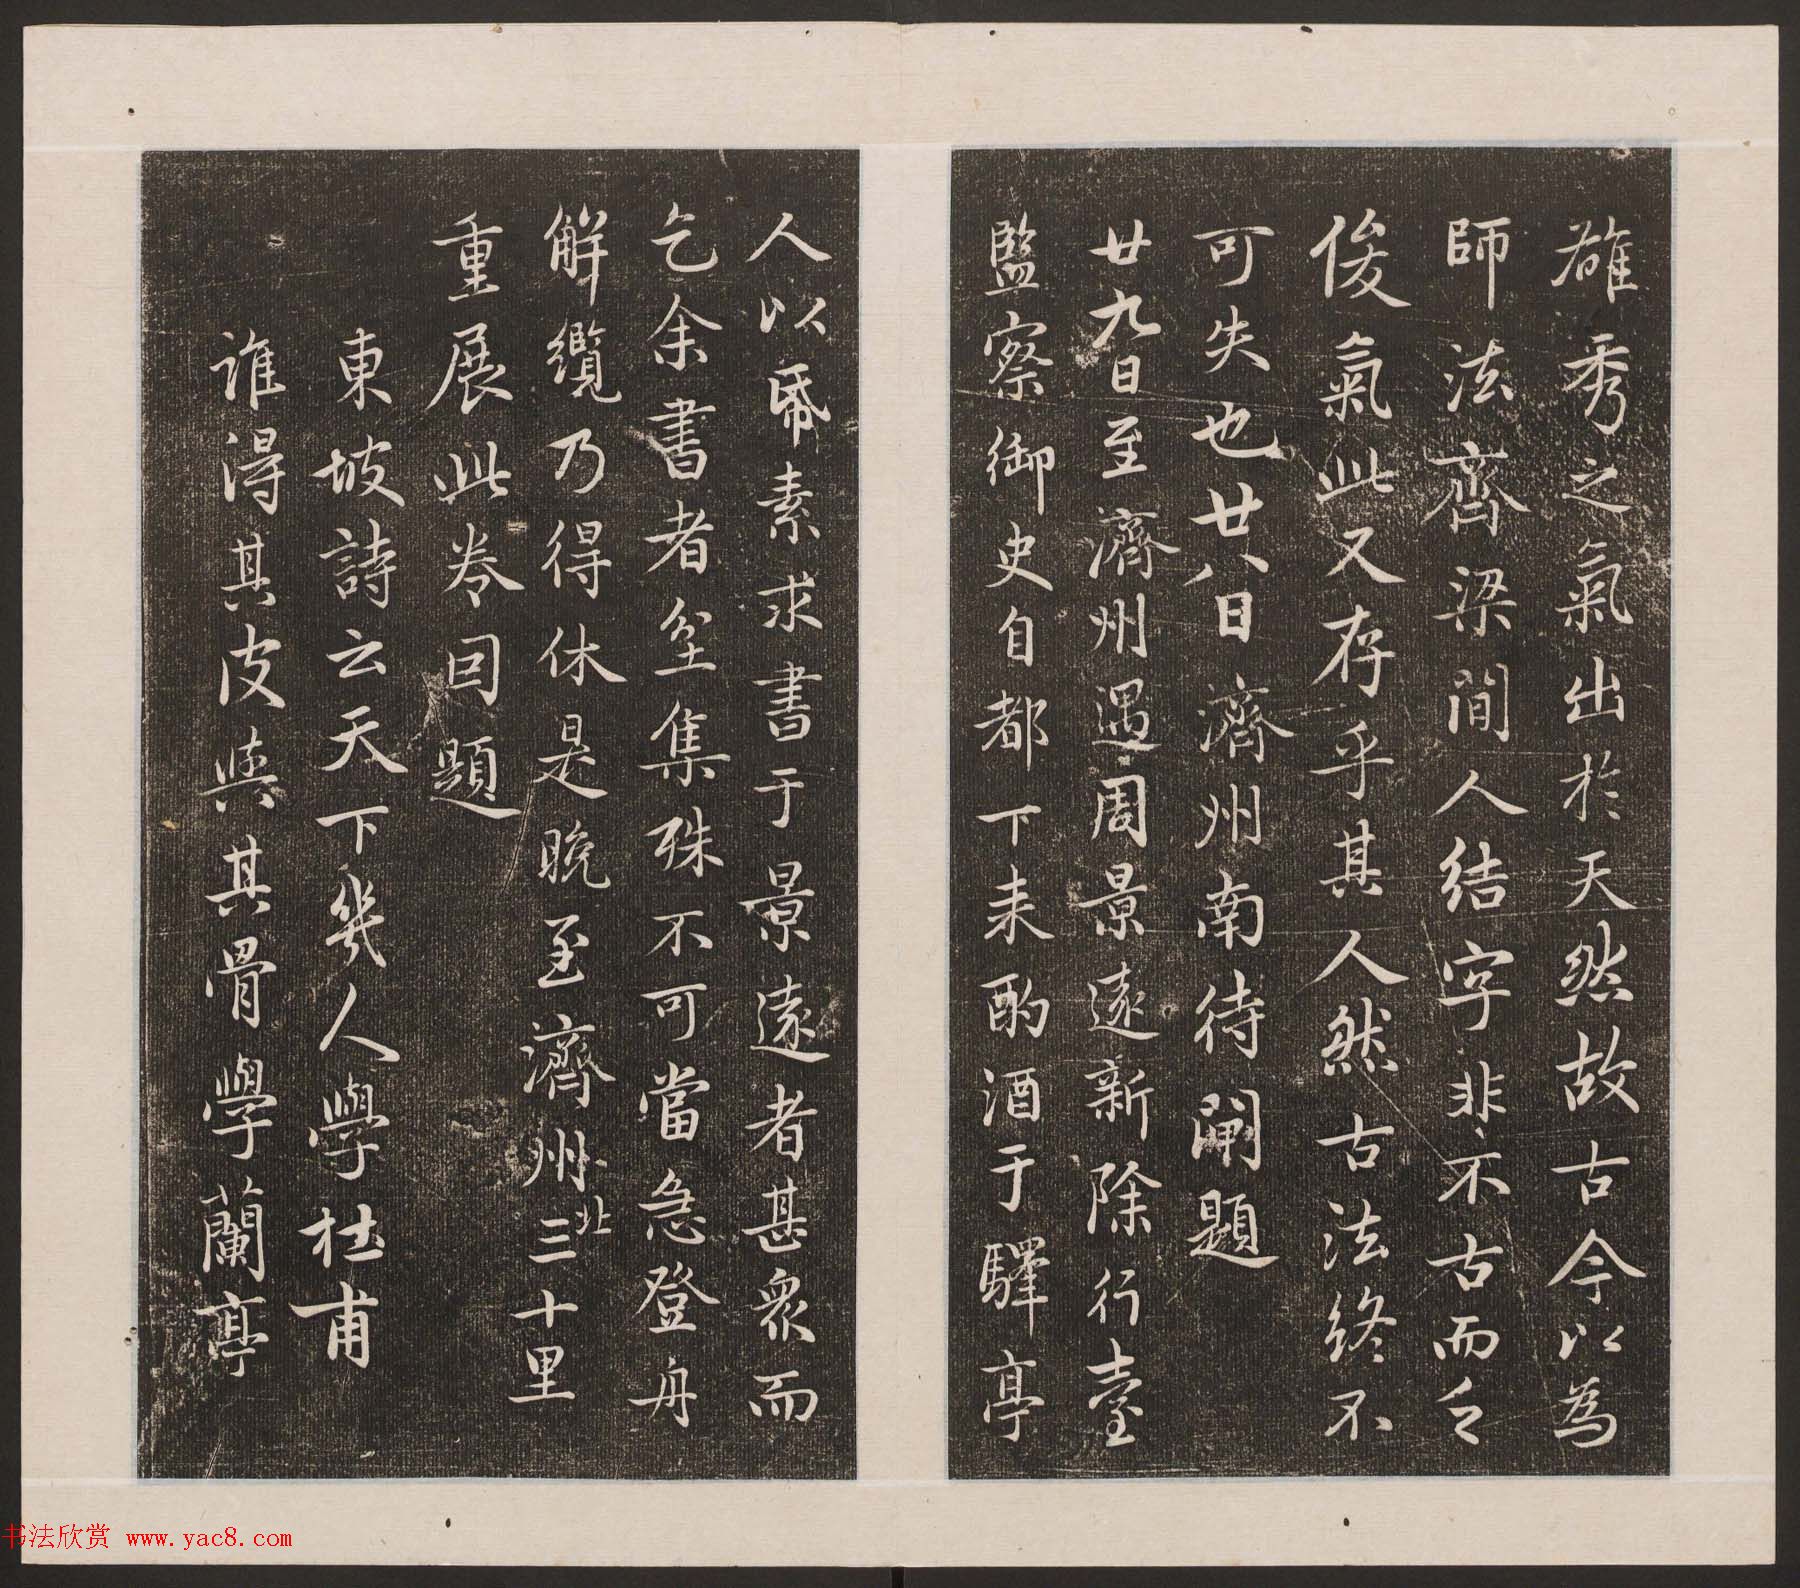 雄秀之氣出於天然故古今以為
師法齊梁間人結字非不古而乏
俊氣此又存乎其人然古法終不
可失也廿八日濟州南待閘題
廿九日至濟州遇周景遠新除行臺
監察御史自都下来酌酒于驛亭
人以㡀素求書于景遠者甚衆而
乞余書者坌集殊不可當急登舟
解纜乃得休是晚至濟州北三十里
重展此卷因題
東坡詩云天下幾人學杜甫
誰得其皮與其骨學蘭亭
书法欣赏 www.yac8.com